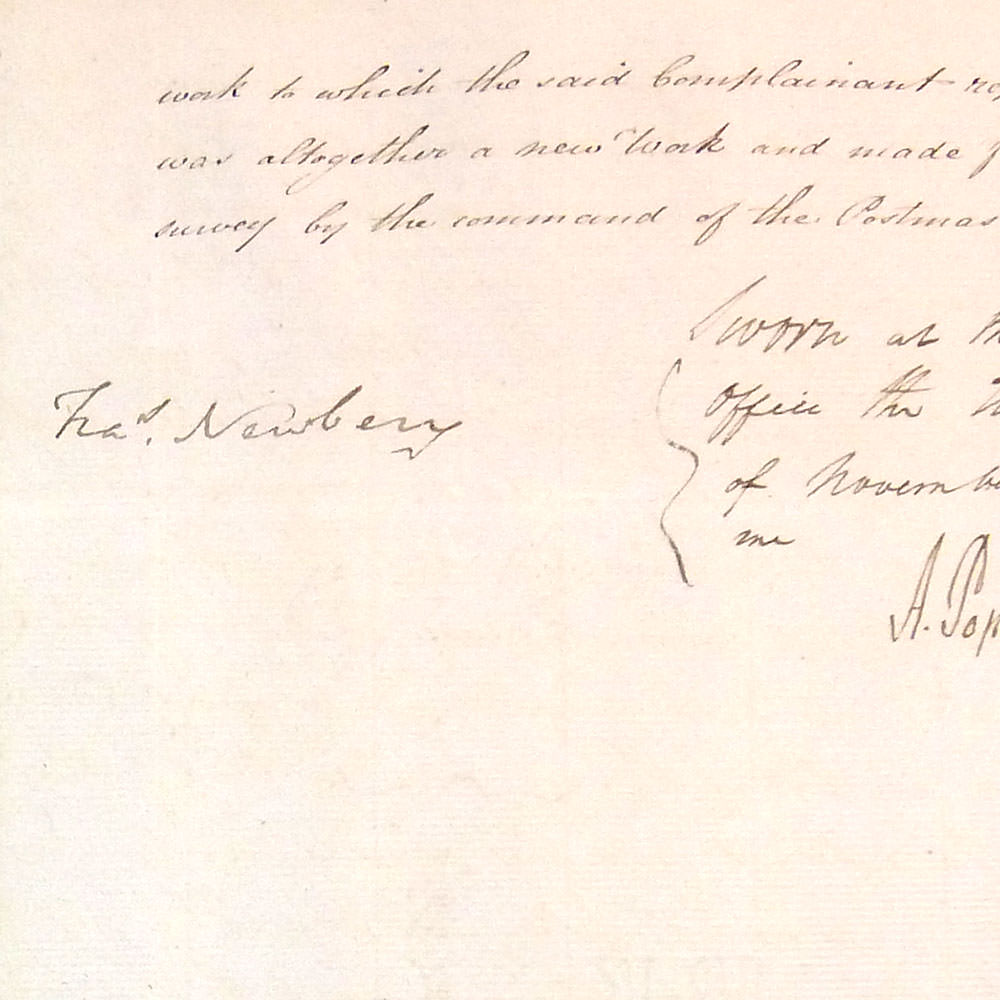 work to which the said Complainant
was altogether a new Work and made
survey by the command of the Postmas
Sworn at th
Office the
Fras. Newbery
of Novembe
me
A. Pop